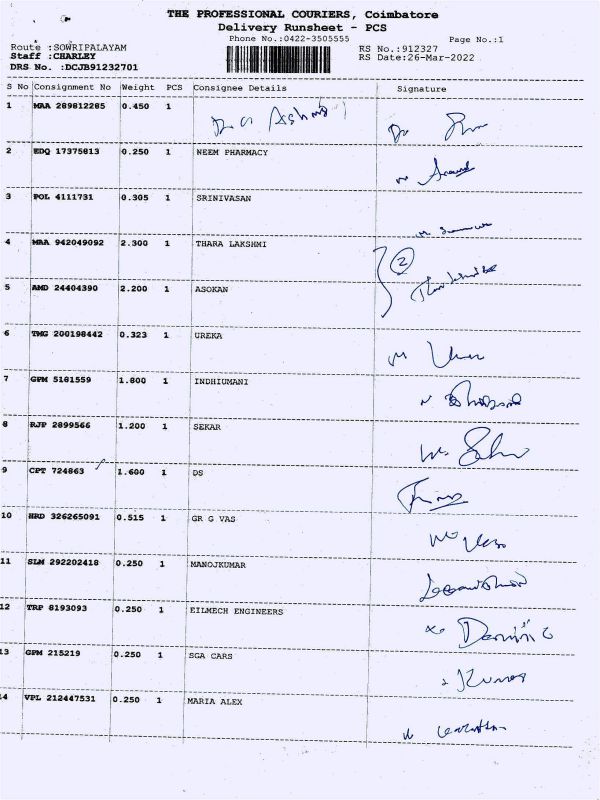 THE PROFESSIONAL COURIERS, Coimbatore
Delivery Runsheet - PCS
Phone No.:0422-3505555 Page No.:1
Route :SOWRIPALAYAM RS No.:912327
Staff :CHARLEY RS Date:26-Mar-2022
DRS No. :DCJB91232701
S No Consignment No Weight PCS Consignee Details Signature
1 MAA 289812285 0.450 1
2 EDQ 17375813 0.250 1 NEEM PHARMACY
3 POL 4111731 0.305 1 SRINIVASAN
4 MAA 942049092 2.300 1 THARA LAKSHMI 2
5 AMD 24404390 2.200 1 ASOKAN
6 TMG 200198442 0.323 1 UREKA
7 GPM 5181559 1.800 1 INDHIUMANI
8 RJP 2899566 1.200 1 SEKAR
9 CPT 724863 1.600 1 DS
10 HRD 326265091 0.515 1 GR G VAS
11 SLM 292202418 0.250 1 MANOJKUMAR
12 TRP 8193093 0.250 1 EILMECH ENGINEERS
13 GPM 215219 0.250 1 SGA CARS
Kumar
14 VPL 212447531 0.250 1 MARIA ALEX